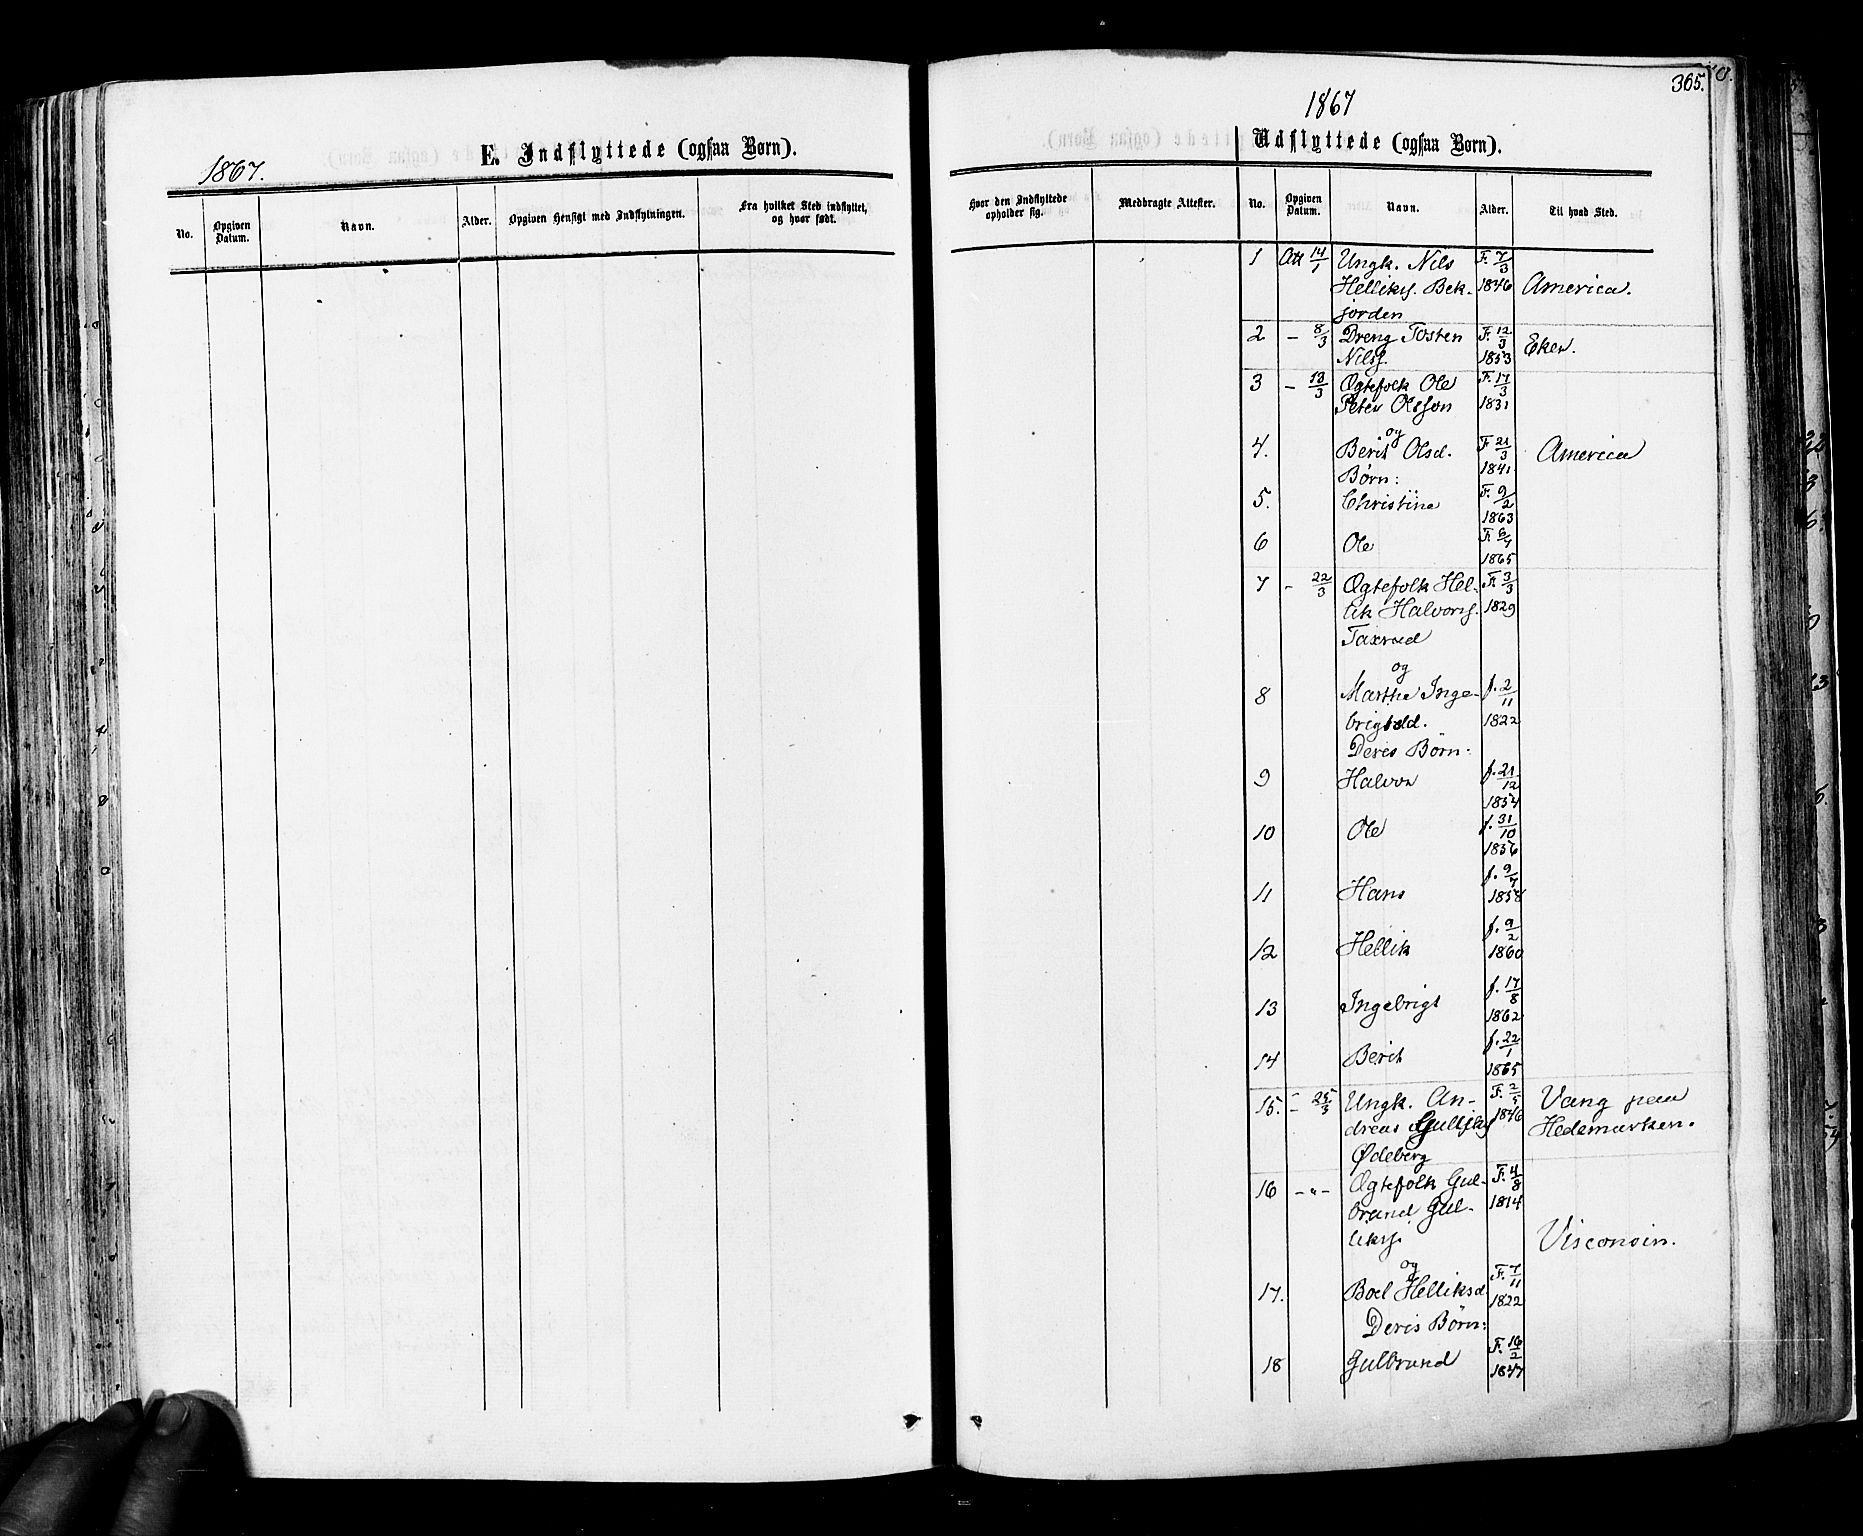 365.
1867.
E. Indflyttede (ogsaa Børn).
No.
Opgiven Datum.
Navn.
Alder.
Opgiven Hensigt med Indflytningen.
Fra hvilket Sted indflyttet, og hvor født.
1867
Udflyttede (ogsaa Børn).
Hvor den Indflyttede opholder sig.
Medbragte Attester.
No.
Opgiven Datum.
Navn.
Alder.
Til hvad Sted.
1 Att 14/1 Ungk. Nils F. 7/3
Helliks. Bek- 1846 America.
jorden
2 – 8/3 Dreng Tosten F. 12/3
Nilss. 1853 Eker.
3 – 13/3 Ægtefolk Ole F. 17/3
Peter Olsson 1831
og
4. Berit Olsd. F. 21/3 America
Børn: 1841
5. Christine F. 9/2
1863
6 Ole F. 6/7
1865
7 – 22/3 Ægtefolk Hel- F. 3/3
lik Halvors. 1829
Taxrud
og
8 Marthe Inge- f. 2/11
brigtsd. 1822
Deres Børn:
9 Halvor f. 21/12
1854
10 Ole f. 31/10
1856
11 Hans f. 9/7
1858
12 Hellik f. 9/2
1860
13 Ingebrigt f. 17/8
1862
14 Berit f. 22/1
1865
15. – 25/3 Ungk. An- F. 2/5 Vang paa
dreas Gulliks 1846 Hedemarken.
Ødeberg
16 –"– Ægtefolk Gul- F. 4/8
brand Gul- 1814
likss. Visconsin.
og
17. Boel Helliksd. F. 7/11
1822
Deres Børn:
18 Gulbrand F. 16/2
1847